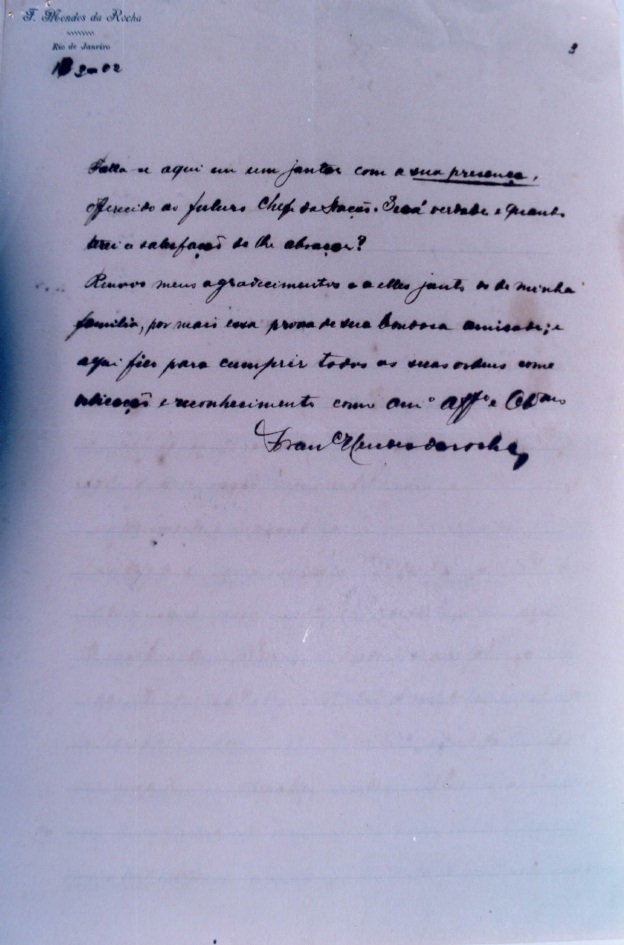 F. Mendes da Rocha
Rio de Janeiro
3
Falla-se aqui em um jantar com a sua presença,
offerecido ao futuro Chefe da Nação. Será verdade e quando
terei a satisfação de lhe abraçar?
Renovo meus agradecimentos e a elles junto os de minha
familia, por mais essa prova de sua bondosa amisade; e
aqui fico para cumprir todas as suas ordens com
dedicação e reconhecimento como amº affº e
Franc Mendes da Rocha